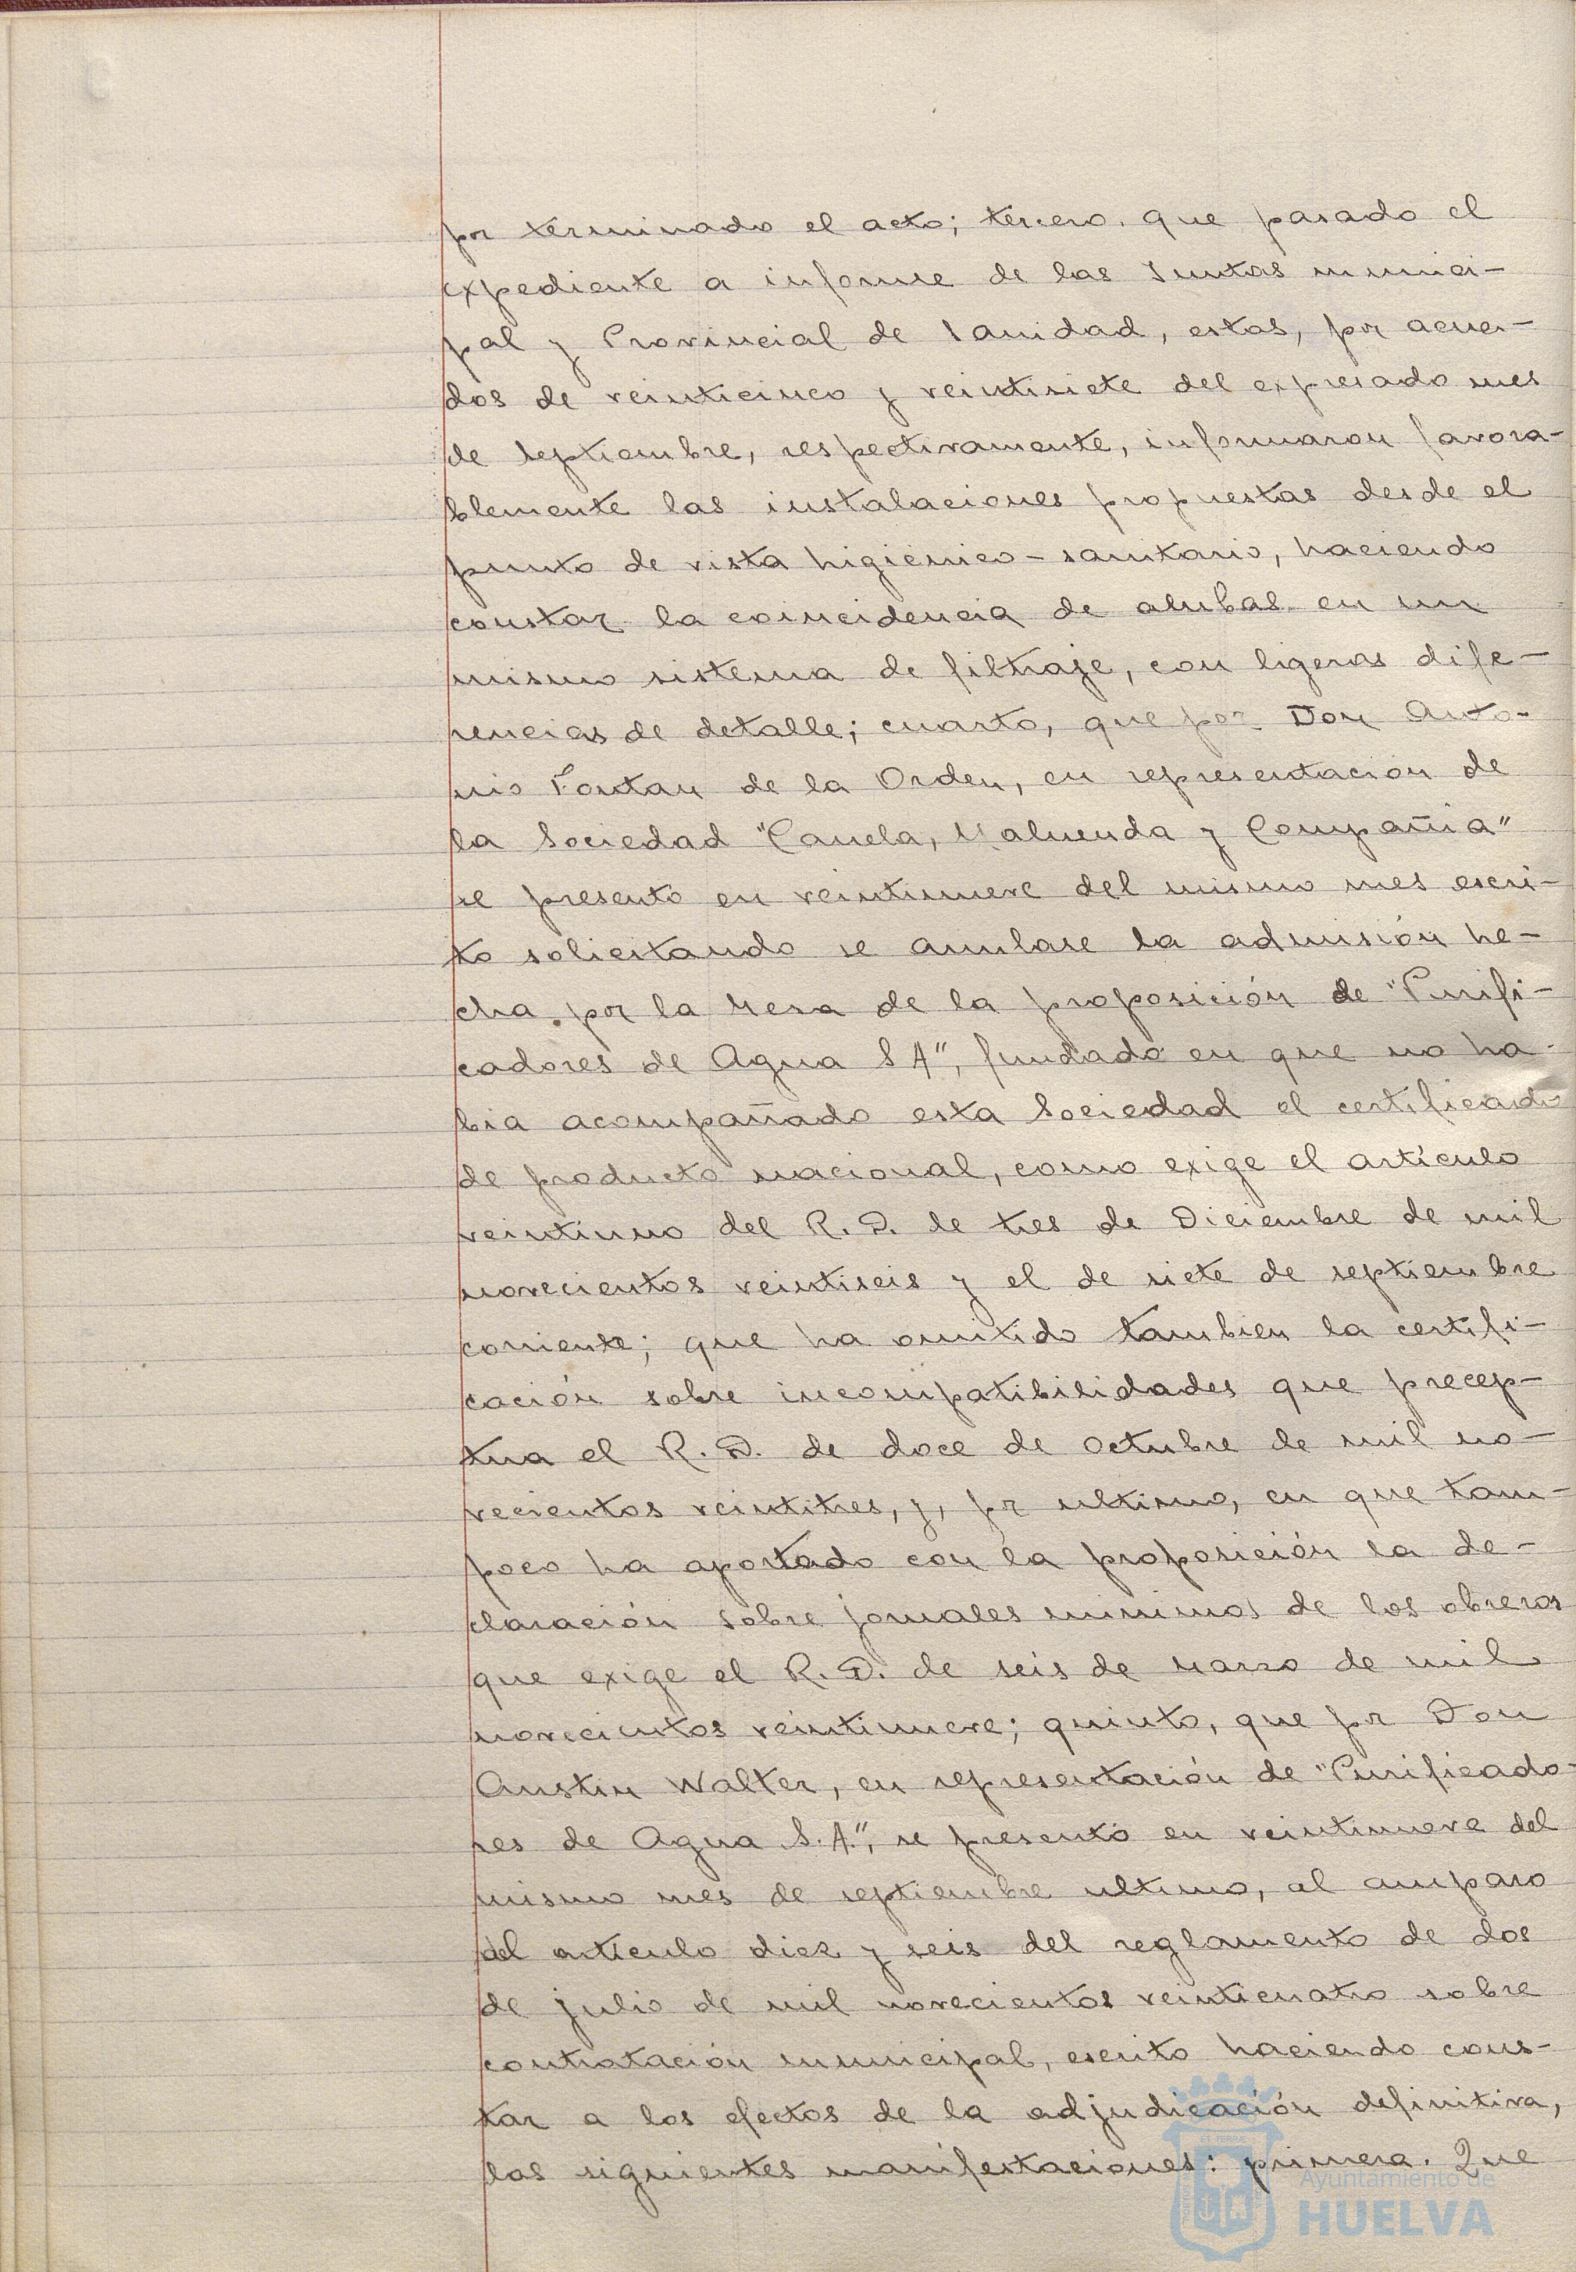 por terminado el acto; tercero. que pasado el
expediente a informe de las Juntas munici-
pal y Provincial de Sanidad, estas, por acuer-
dos de veinticinco y veintisiete del expresado mes
de septiembre, respectivamente, informaron favora-
blemente las instalaciones propuestas desde el
punto de vista higiénico-sanitario, haciendo
constar la coincidencia de ambas en un
mismo sistema de filtraje, con ligeras dife-
rencias de detalle; cuarto, que por Don Anto-
nio Fontan de la Orden, en representación de
la Sociedad "Canela, Maluenda y Compañia"
se presentó en veintinueve del mismo mes escri-
to solicitando se anulase la admisión he-
cha por la Mesa de la proposición de "Purifi-
cadores de Agua S A", fundado en que no ha-
bia acompañado esta Sociedad el certificado
de producto nacional, como exige el artículo
veintiuno del R. D. de tres de Diciembre de mil
novecientos veintiseis y el de siete de septiembre
corriente; que ha omitido tambien la certifi-
cación sobre incompatibilidades que precep-
tua el R. D. de doce de Octubre de mil no-
vecientos veintitres, y, por ultimo, en que tam-
poco ha aportado con la proposición la de-
claración sobre jornales minimos de los obreros
que exige el R. D. de seis de Marzo de mil
novecientos veintinueve; quinto, que por Don
Austin Walter, en representación de "Purificado-
res de Agua S.A.", se presentó en veintinueve del
mismo mes de septiembre ultimo, al amparo
del artículo diez y seis del reglamento de dos
de julio de mil novecientos veinticuatro sobre
contratación municipal, escrito haciendo cons-
tar a los efectos de la adjudicación definitiva,
las siguientes manifestaciones: primera. Que
Ayuntamiento de
HUELVA